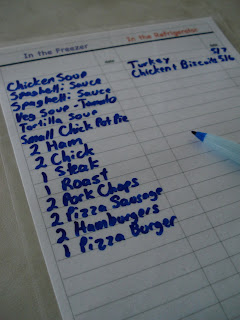 In the Freezer
In the Refrigerator
Chicken Soup
Spaghetti Sauce
Spaghetti Sauce
Veg Soup - Tomato
Tortilla Soup
Small Chick Pot Pie
2 Ham
2 Chick
1 Steak
1 Roast
2 Pork Chops
2 Pizza Sausage
2 Hamburgers
1 Pizza Burger
Turkey 5/7
Chicken & Biscuits 5/6